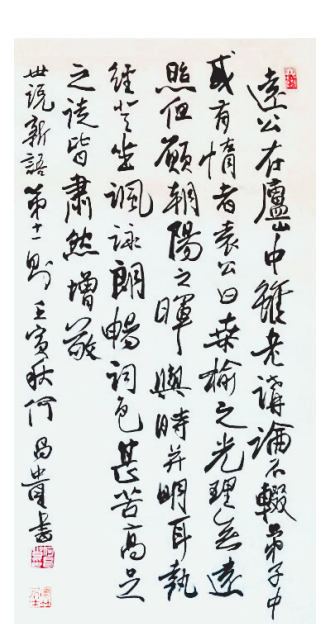 遠公在廬山中雖老講論不輟弟子中
或有惰者遠公曰桑榆之光理無遠
照但願朝陽之暉與時並明耳執
經登坐諷詠朗暢詞色甚苦高足
之徒皆肅然增敬
世說新語第十一則壬寅秋何昌貴書